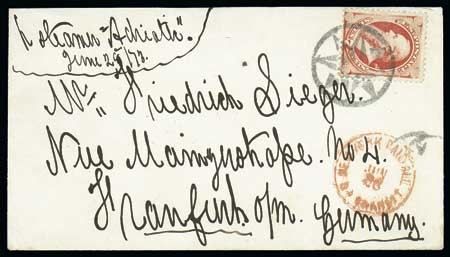 p steamer "Adriatic".
June 25/73.
Mr. Friedrich Sieger.
Neue Mainzerstraße. No 4.
Frankfurt o/m. Germany.
NEW YORK PAID ALL
JUN
TRANSIT